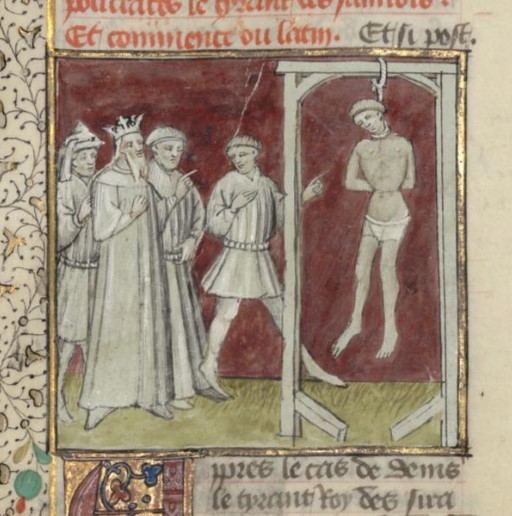 policrates le tyrant des samiois.
Et commence ou latin. Et si post.
Apres le cas de denis
le tyrant Roy des sira